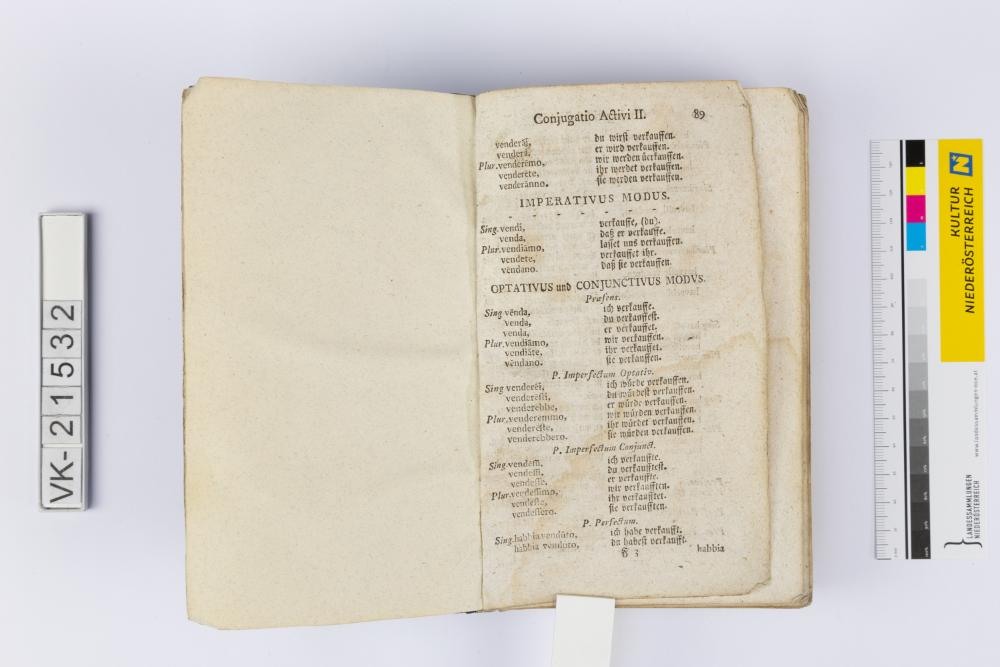 VK-21532
Conjugatio Activi II. 89
venderāi, du wirst verkauffen.
venderà, er wird verkauffen.
Plur. venderēmo, wir werden verkauffen.
venderēte, ihr werdet verkauffen.
venderānno. sie werden verkauffen.
IMPERATIVUS MODUS.
- - - - - - -
Sing. vendi, verkauffe, (du).
venda, daß er verkauffe.
Plur. vendiāmo, lasset uns verkauffen.
vendete, verkauffet ihr.
vēndano. daß sie verkauffen.
OPTATIVUS und CONJUNCTIVUS MODVS.
Præsens.
Sing. vēnda, ich verkauffe.
venda, du verkauffest.
venda, er verkauffet.
Plur. vendiāmo, wir verkauffen.
vendiāte, ihr verkauffet.
vēndano. sie verkauffen.
P. Imperfectum Optativ.
Sing. venderēi, ich würde verkauffen.
venderēsti, du würdest verkauffen.
venderebbe, er würde verkauffen.
Plur. venderemmo, wir würden verkauffen.
venderēste, ihr würdet verkauffen.
venderebbero. sie würden verkauffen.
P. Imperfectum Conjunct.
Sing. vendessi, ich verkauffte.
vendessi, du verkaufftest.
vendesse, er verkauffte.
Plur. vendessimo, wir verkaufften.
vendeste, ihr verkaufftet.
vendessero. sie verkaufften.
P. Perfectum.
Sing. habbia vendūto, ich habe verkaufft.
habbia venduto, du habest verkaufft.
G 3 habbia
KULTUR
NIEDERÖSTERREICH
N
www.landessammlungen-noe.at
LANDESSAMMLUNGEN
NIEDERÖSTERREICH